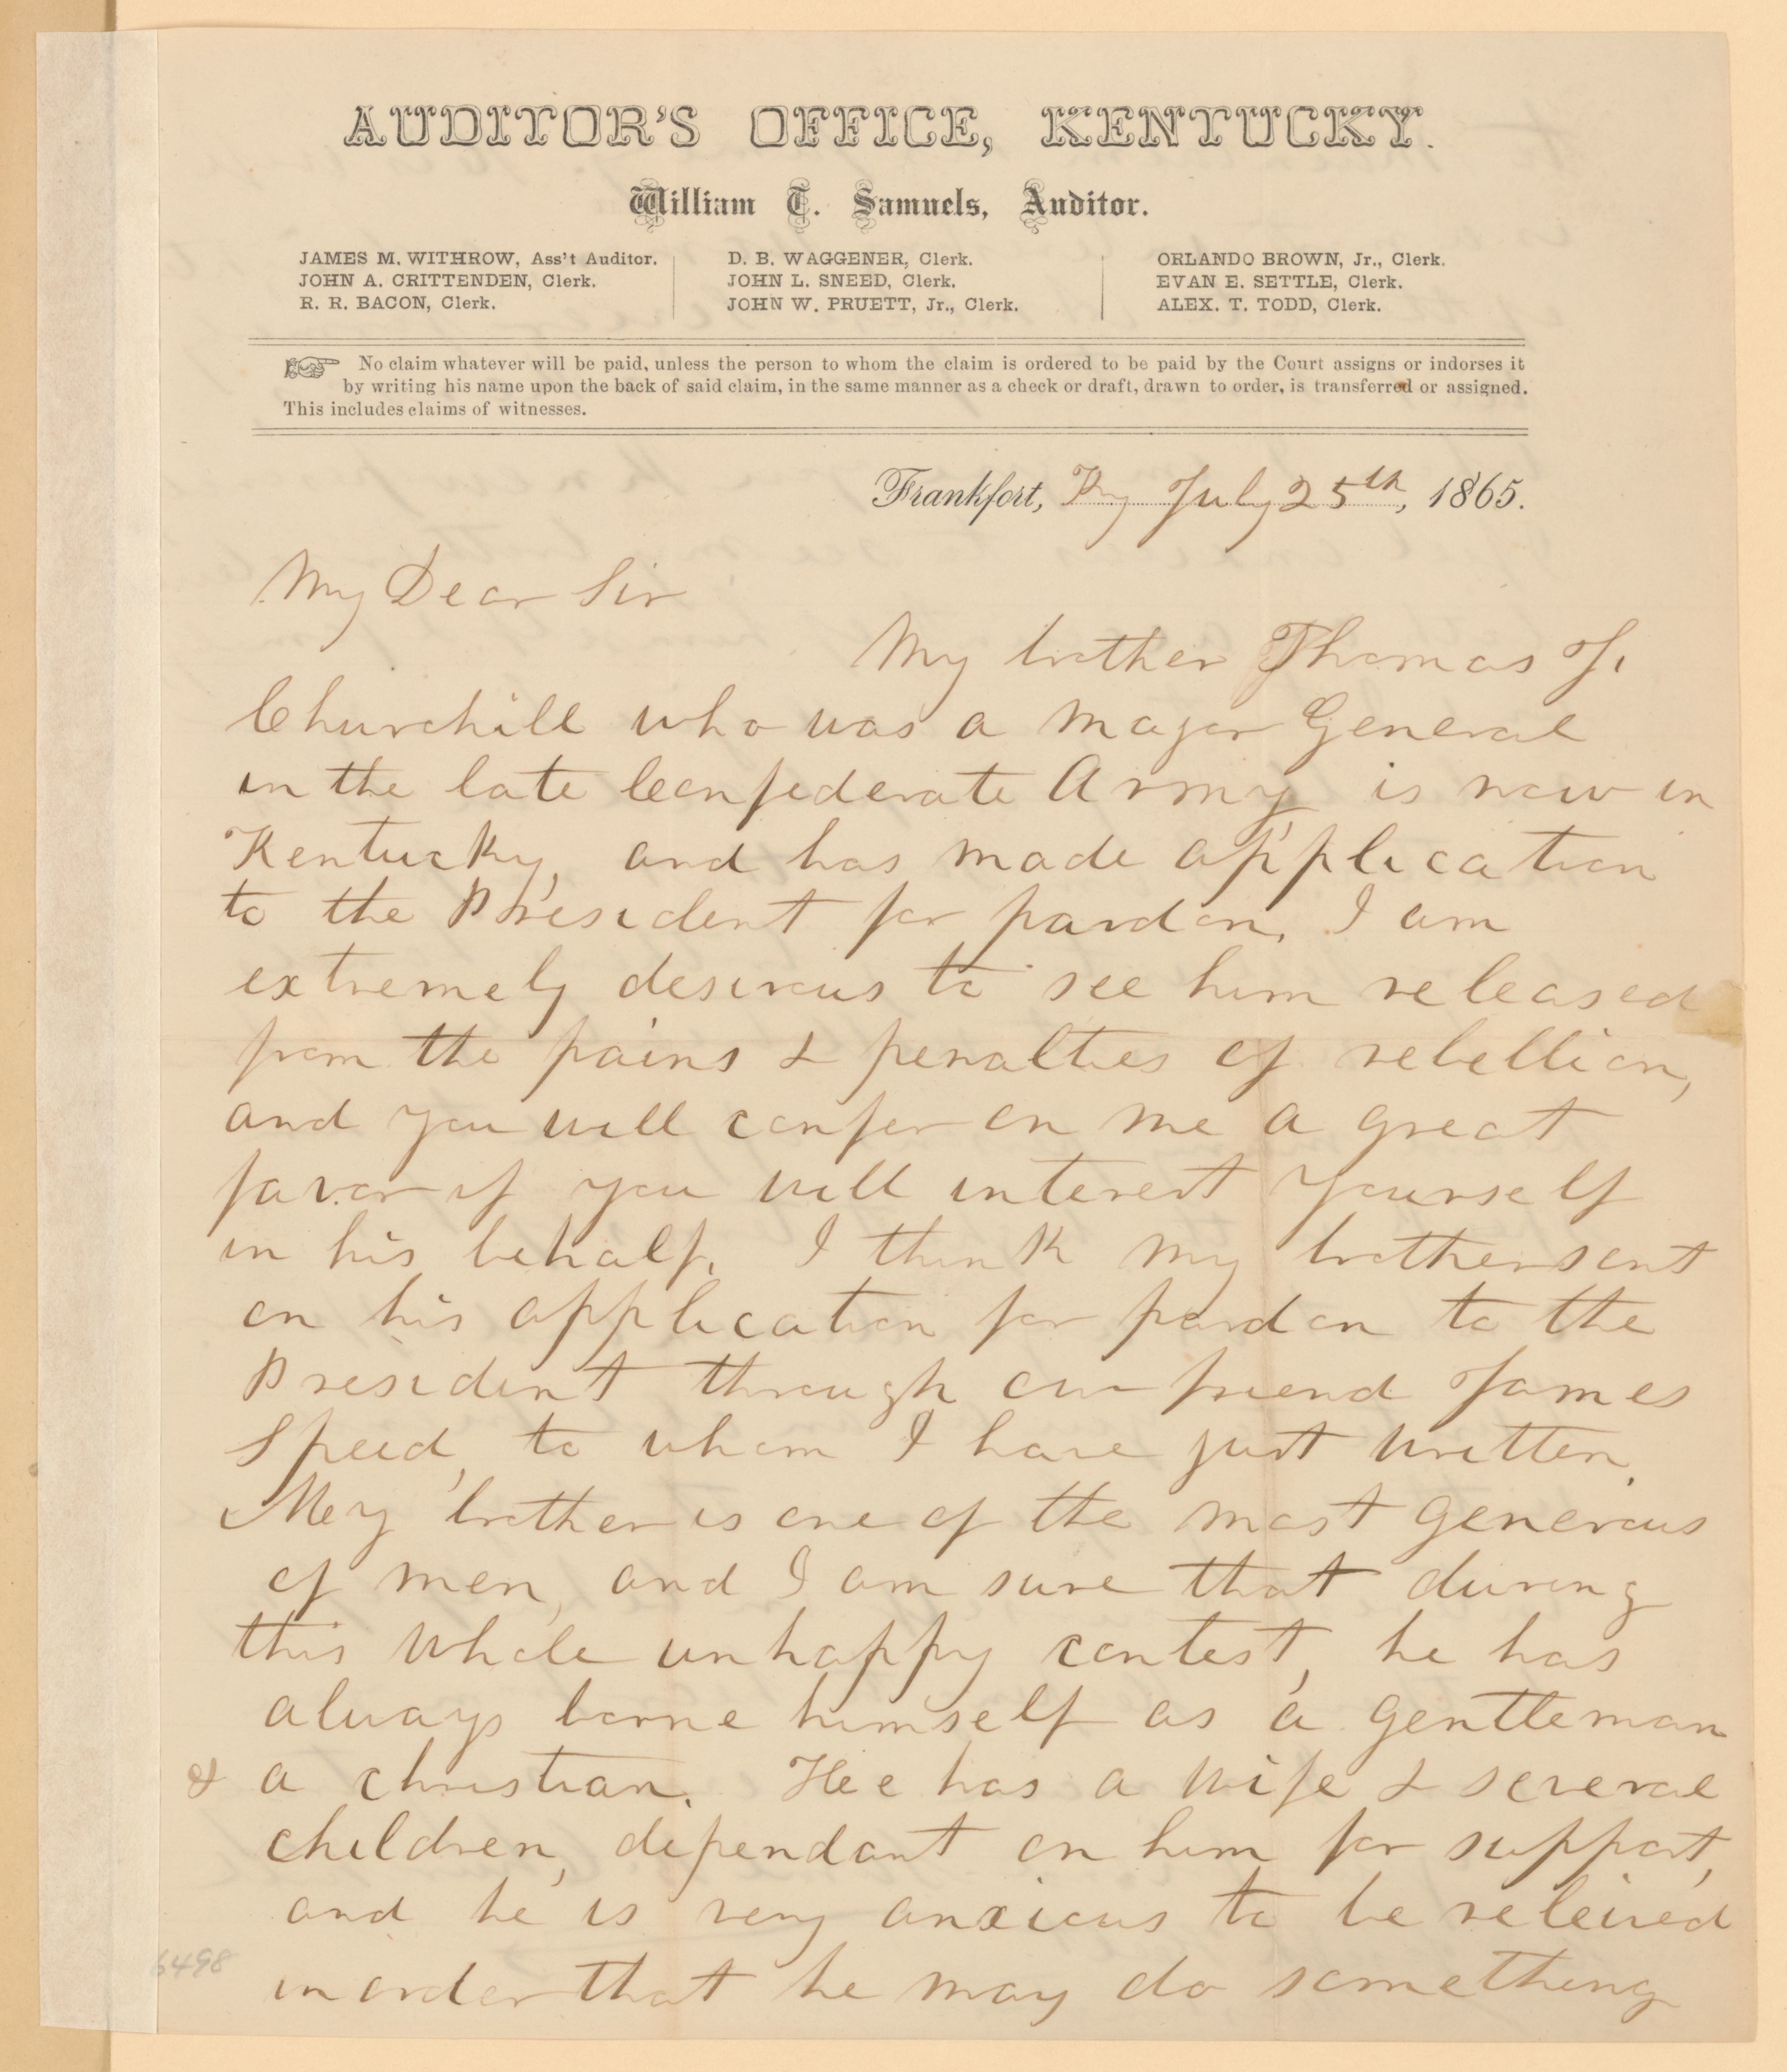 AUDITOR'S OFFICE, KENTUCKY.
William T. Samuels, Auditor.
JAMES M. WITHROW, Ass't Auditor.
JOHN A. CRITTENDEN, Clerk.
R. R. BACON, Clerk.
D. B. WAGGENER, Clerk.
JOHN L. SNEED, Clerk.
JOHN W. PRUETT, Jr., Clerk.
ORLANDO BROWN, Jr., Clerk.
EVAN E. SETTLE, Clerk.
ALEX. T. TODD, Clerk.
☞ No claim whatever will be paid, unless the person to whom the claim is ordered to be paid by the Court assigns or indorses it
by writing his name upon the back of said claim, in the same manner as a check or draft, drawn to order, is transferred or assigned.
This includes claims of witnesses.
Frankfort, Ky July 25th, 1865.
My Dear Sir
My brother Thomas J.
Churchill who was a Major General
in the late Confederate Army is now in
Kentucky, and has made application
to the President for pardon. I am
extremely desirous to see him released
from the pains & penalties of rebellion,
and you will confer on me a great
favor if you will interest yourself
in his behalf. I think my brother sent
on his application for pardon to the
President through our friend James
Speed, to whom I have just written.
My brother is one of the most generous
of men, and I am sure that during
this whole unhappy contest, he has
always borne himself as a gentleman
& a christian. Hee has a wife & several
children, dependant on him for support,
and he is very anxious to be releived
in order that he may do something
6498